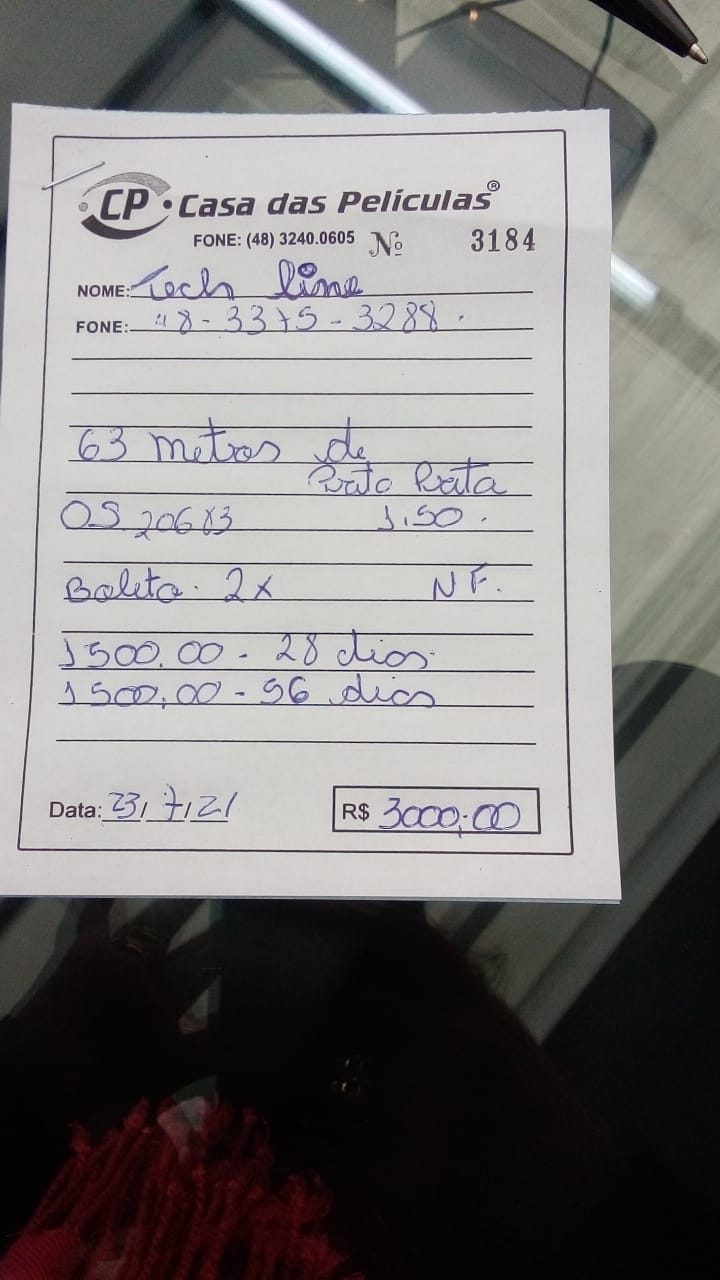 CP • Casa das Películas®
FONE: (48) 3240.0605 Nº 3184
NOME: Tech line
FONE: 48-3375-3288.
63 metros de
Prata
OS 20683 1,50.
Boleto. 2x NF.
1500,00 - 28 dias
1500,00 - 56 dias
Data: 23/7/21 R$ 3000,00